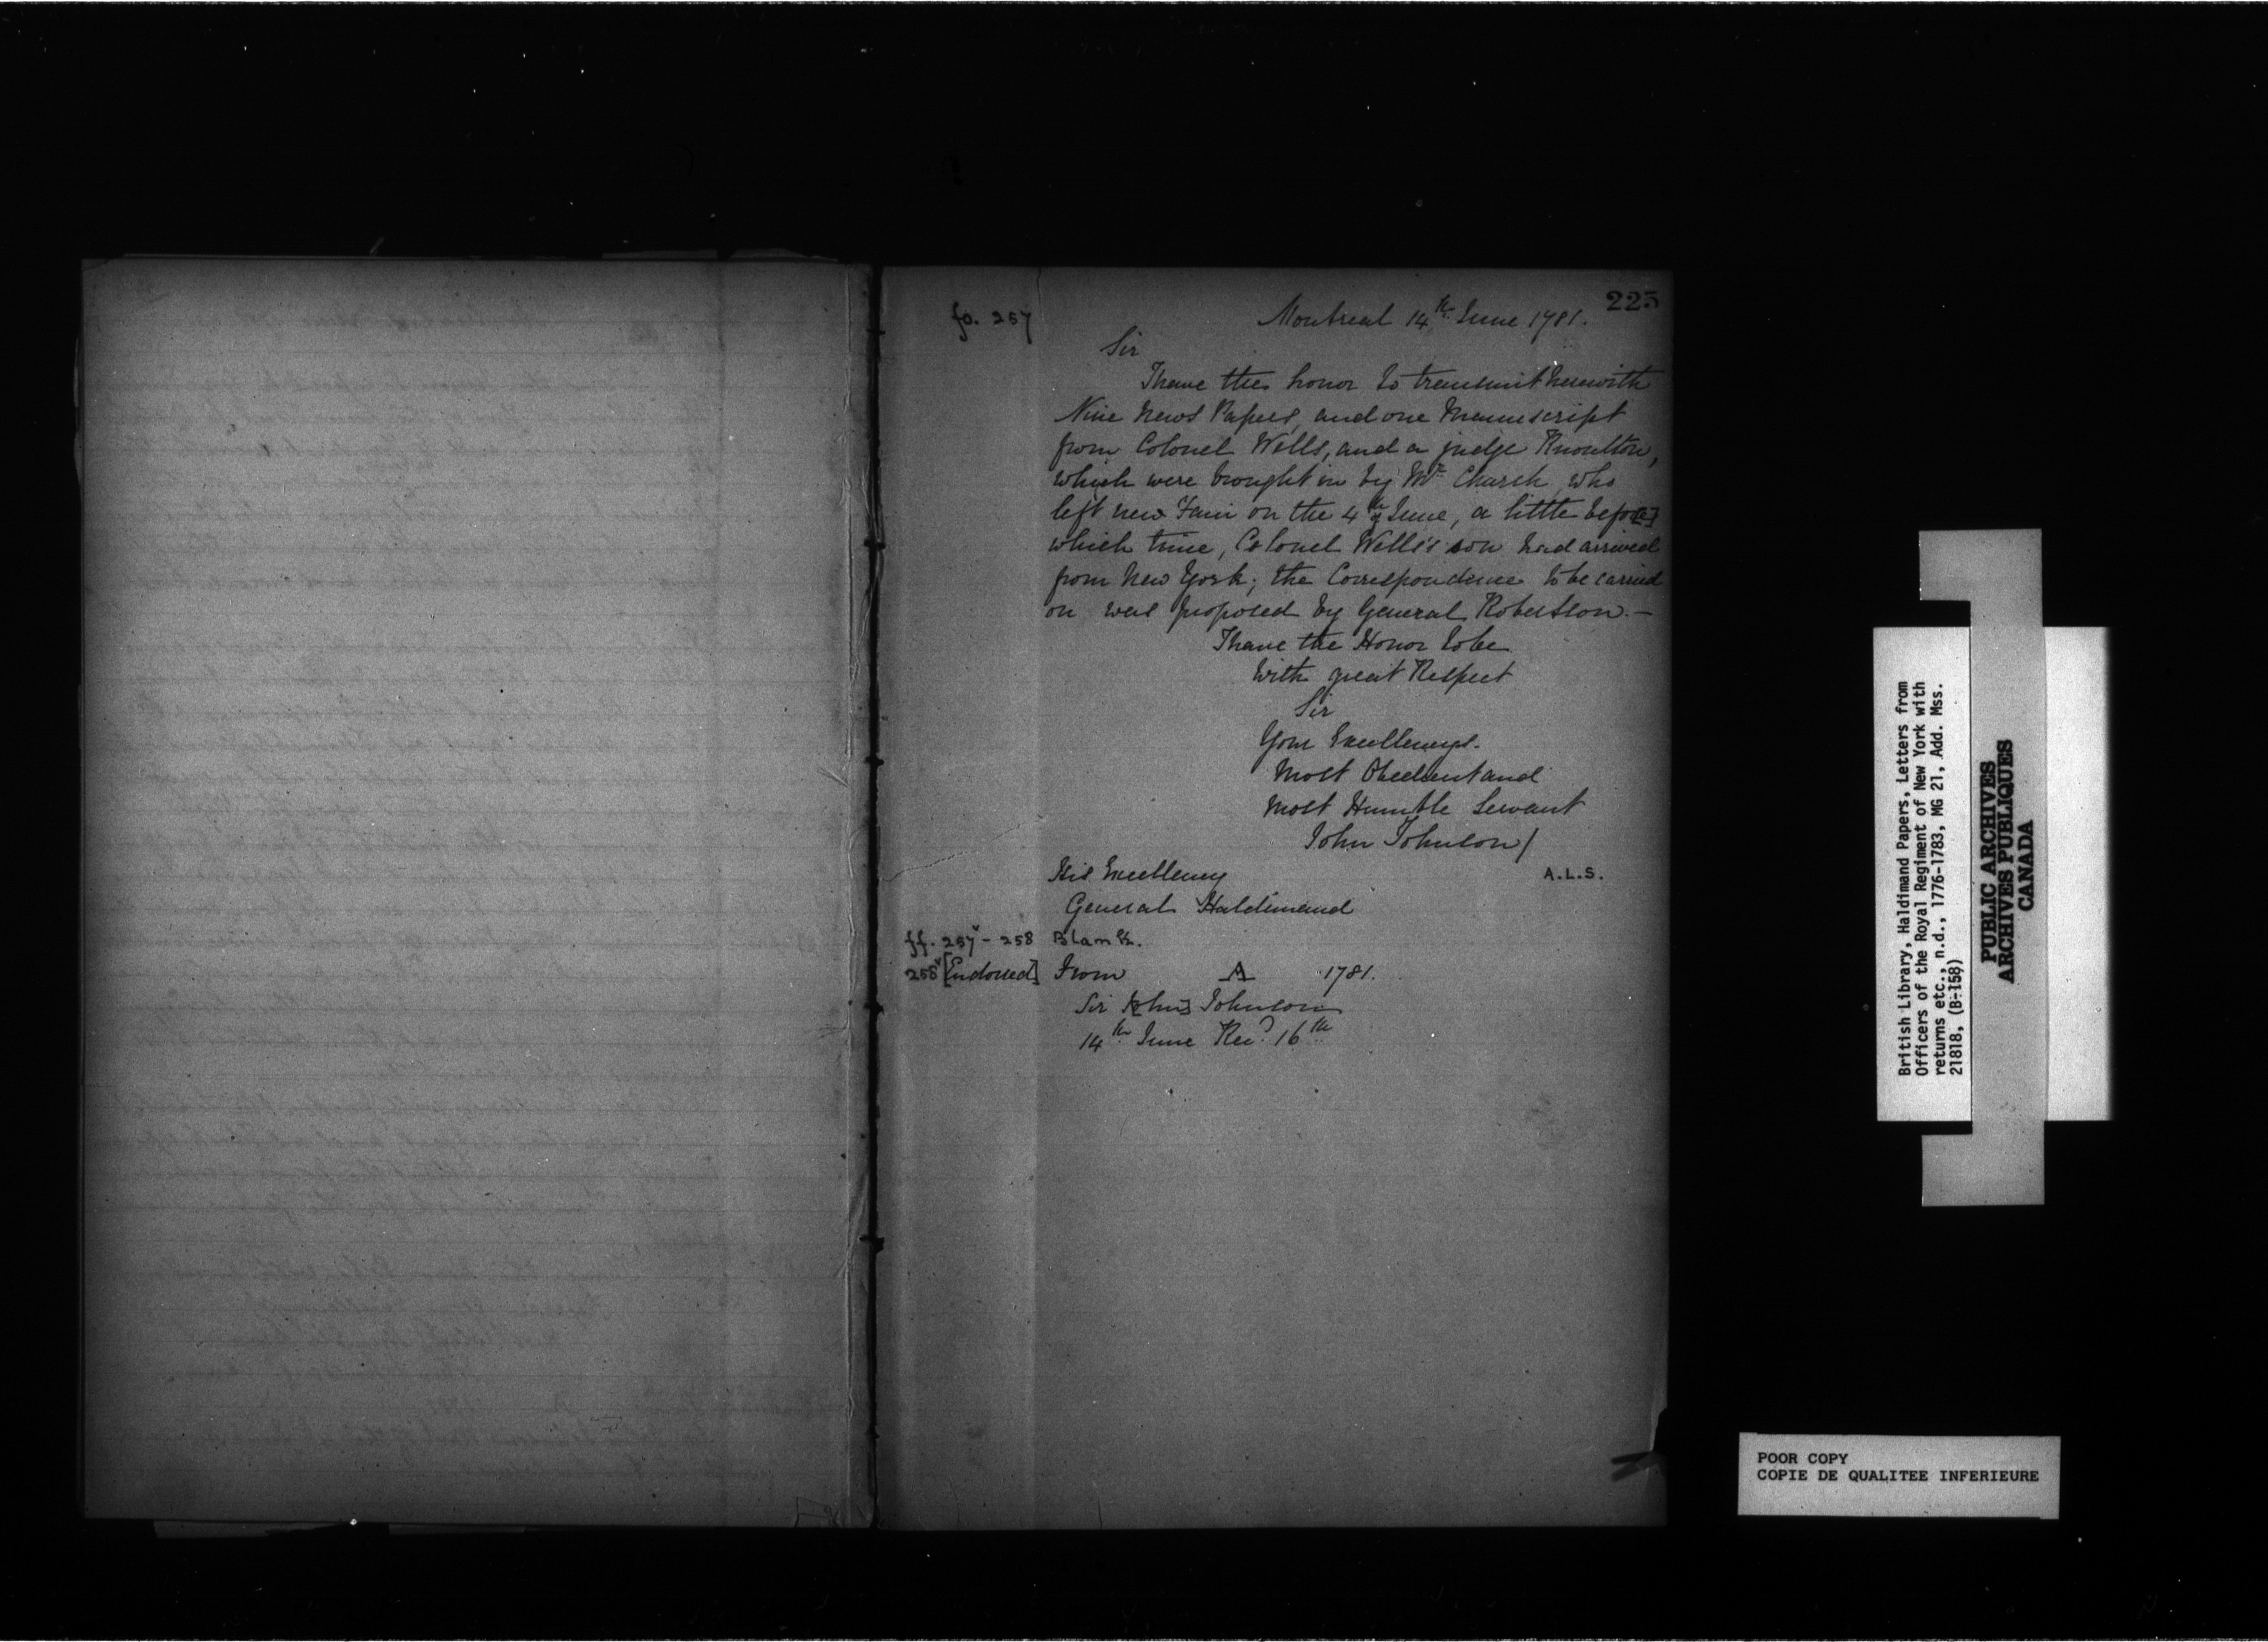 225
fo. 257
Montreal 14th June 1781.
Sir
I have the honor to transmit herewith
Nine News Papers, and one Manuscript
from Colonel Wells, and a judge Knoulton,
which were brought in by Mr Church who
left new Fain on the 4th of June, a little befor[e]
which time, Colonel Wells's son had arrived
from New York; the Correspondence to be carried
on was proposed by General Robertson. —
I have the Honor to be
With great Respect
Sir
Your Excellencys.
Most Obedient and
Most Humble Servant
John Johnson /
His Excellency A.L.S.
General Haldimand
ff. 257v - 258 Blank.
258v [Endorsed] From A 1781.
Sir J[ohn] Johnson
14th June Recd. 16th
British Library, Haldimand Papers, Letters from
Officers of the Royal Regiment of New York with
returns etc., n.d., 1776-1783, MG 21, Add. Mss.
21818, (B-158)
PUBLIC ARCHIVES
ARCHIVES PUBLIQUES
CANADA
POOR COPY
COPIE DE QUALITEE INFERIEURE